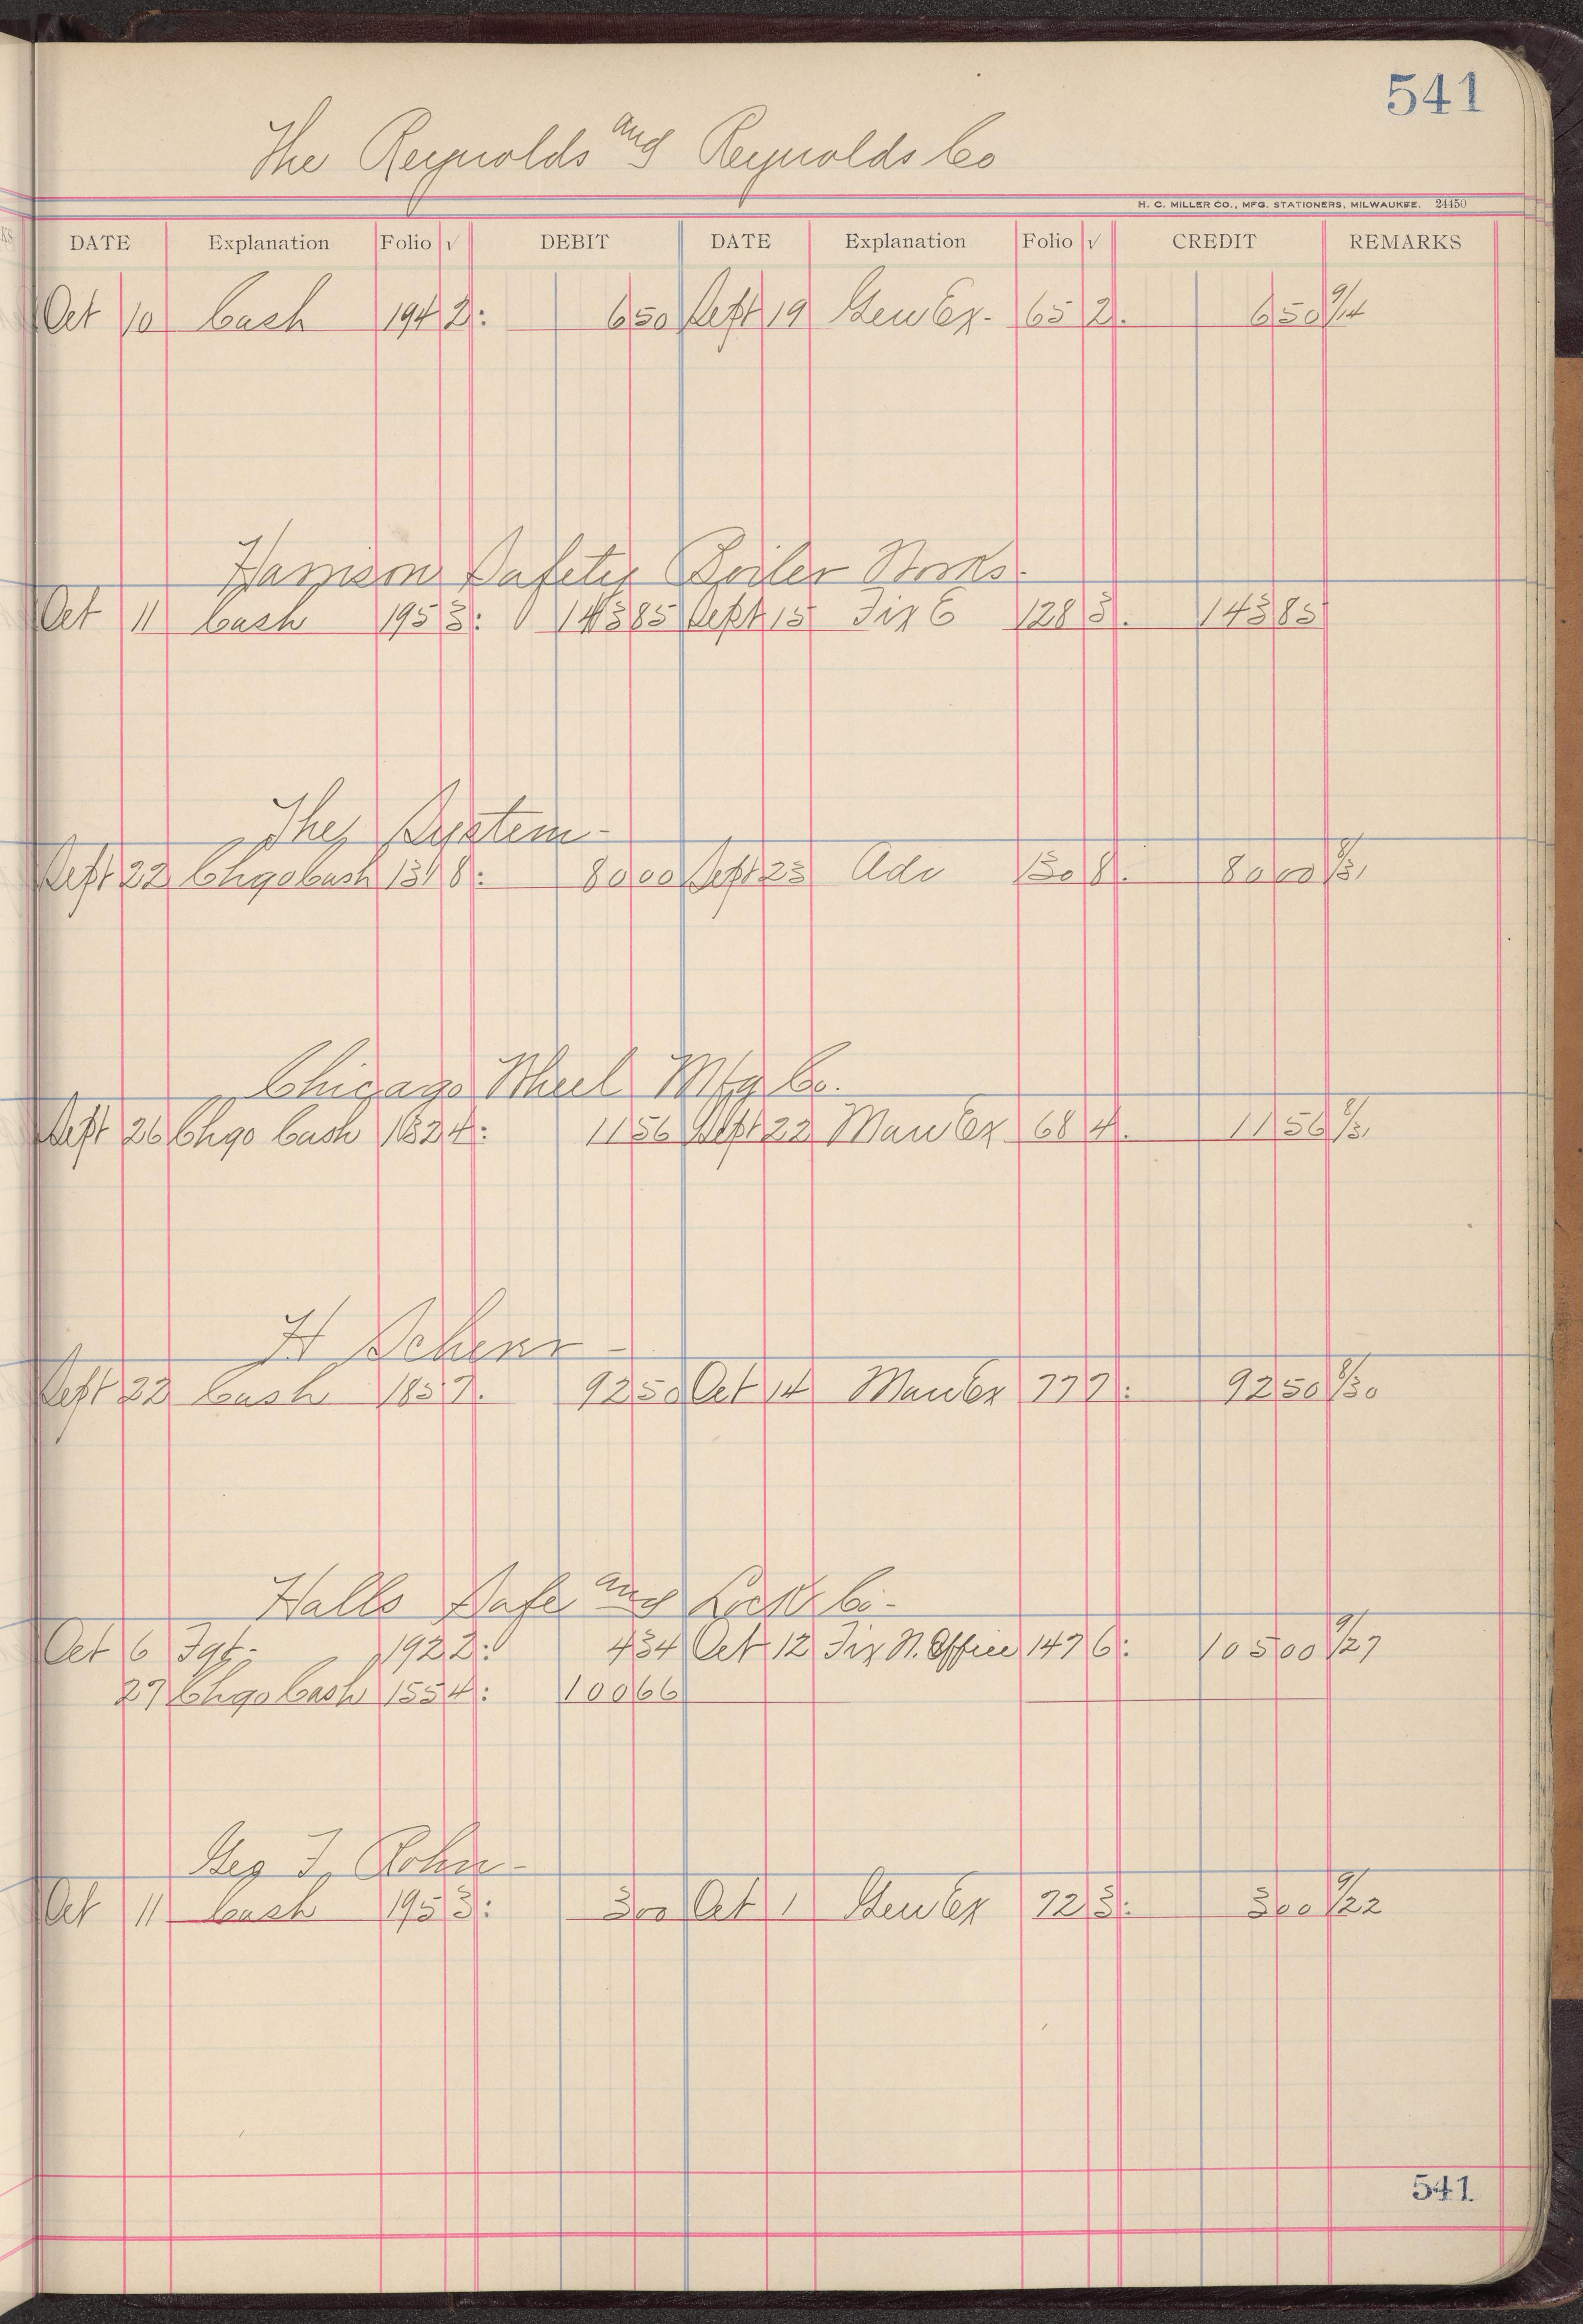 541
The Reynolds and Reynolds Co
H. C. MILLER CO., MFG. STATIONERS, MILWAUKEE. 24450
DATE Explanation Folio √ DEBIT DATE Explanation Folio √ CREDIT REMARKS
Oct 10 Cash 194 2: 650 Sept 19 Gen Ex. 65 2. 650 9/14
Harrison Safety Boiler Works.
Oct 11 Cash 195 3: 14385 Sept 15 Fix E 128 3. 14385
The System -
Sept 22 Chgo Cash 134 8: 8000 Sept 23 Adv 130 8. 8000 8/31
Chicago Wheel Mfg Co.
Sept 26 Chgo Cash 132 4: 1156 Sept 22 Man Ex 68 4. 1156 8/31
H Schenr -
Sept 22 Cash 185 7. 9250 Oct 14 Man Ex 77 7: 9250 8/30
Halls Safe and Lock Co -
Oct 6 Fgt. 192 2: 434 Oct 12 Fix N. Office 147 6: 10500 9/27
27 Chgo Cash 155 4: 10066
Geo F. Rohn -
Oct 11 Cash 195 3: 300 Oct 1 Gen Ex 72 3: 300 9/22
541